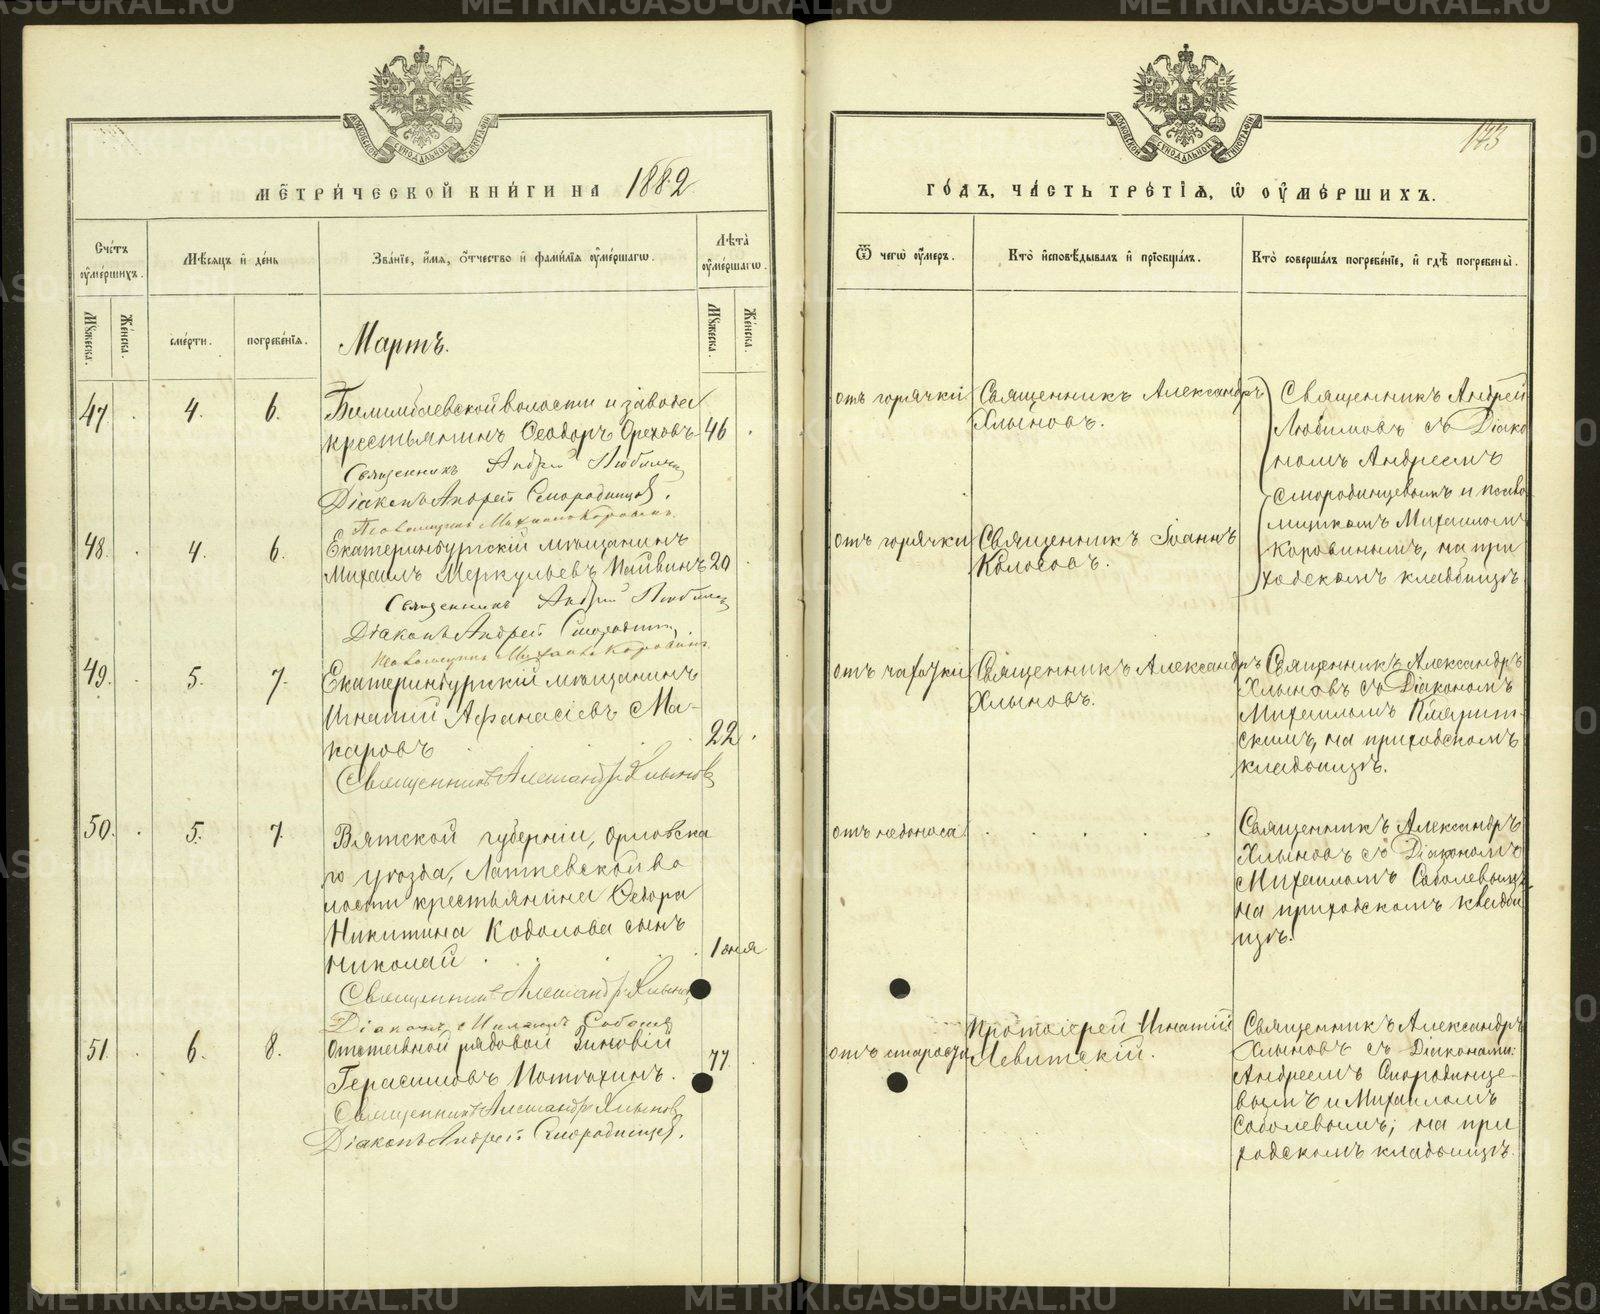 METRIKI.GASO-URAL.RU
МОСКОВСКОЙ СѴНОДАЛЬНОЙ ТИПОГРАФІИ
МЕТРИЧЕСКОЙ КНИГИ НА 1882
Счетъ умершихъ.
Мѣсяцъ и день
Званіе, имя, отчество и фамилія умершагѡ.
Лѣта умершагѡ.
Мужеска.
Женска.
смерти.
погребенія.
Мартъ.
Мужеска.
Женска.
47 . 4. 6.
Билимбаевской волости и завода
крестьянинъ Ѳеодоръ Ореховъ 46 .
Священникъ Андрей Любимовъ
Діаконъ Андрей Смородинцевъ.
Псаломщикъ Михаилъ Коровинъ.
48. . 4. 6.
Екатеринбургскій мѣщанинъ
Михаилъ Меркульевъ 20 .
Священникъ Андрей Любимовъ
Діаконъ Андрей Смородинцевъ
Псаломщикъ Михаилъ Коровинъ
49. . 5. 7.
Екатеринбургскій мѣщанинъ
Игнатій Афанасіевъ Ма-
каровъ . . . . 22 .
Священникъ Александръ Хлыновъ
50. . 5. 7.
Вятской губерніи, Орловска
го уѣзда, Лаптевской во
лости крестьянина Ѳедора
Никитина Кодолова сынъ
Николай . . . . 1 дня
Священникъ Александръ Хлыновъ
Діаконъ Михаилъ Соболевъ
51. . 6. 8.
Отставной рядовой Зиновій
Герасимовъ Потѣхинъ. 77. .
Священникъ Александръ Хлыновъ
Діаконъ Андрей Смородинцевъ.
173
ГОДЪ, ЧАСТЬ ТРЕТІЯ, Ѡ УМЕРШИХЪ.
Ѿ чегѡ умеръ.
Кто исповѣдывалъ и пріобщалъ.
Кто совершалъ погребеніе, и гдѣ погребены.
отъ горячки
Священникъ Александръ
Хлыновъ.
Священникъ Андрей
Любимовъ съ Діако
номъ Андреемъ
Смородинцевымъ и псало
мщикомъ Михаиломъ
Коровинымъ, на при
ходскомъ кладбищѣ
отъ горячки
Священникъ Іоаннъ
Колосовъ.
отъ чахотки
Священникъ Александръ
Хлыновъ.
Священникъ Александръ
Хлыновъ съ Діакономъ
Михаиломъ
скимъ, на приходскомъ
кладбищѣ.
отъ недоноса . . . .
Священникъ Александръ
Хлыновъ съ Діакономъ
Михаиломъ Соболевымъ,
на приходскомъ кладби
щѣ.
отъ старости
Протоіерей Игнатій
Левитскій.
Священникъ Александръ
Хлыновъ съ Діаконами:
Андреемъ Смородинце-
вымъ и Михаиломъ
Соболевымъ, на при
ходскомъ кладбищѣ.